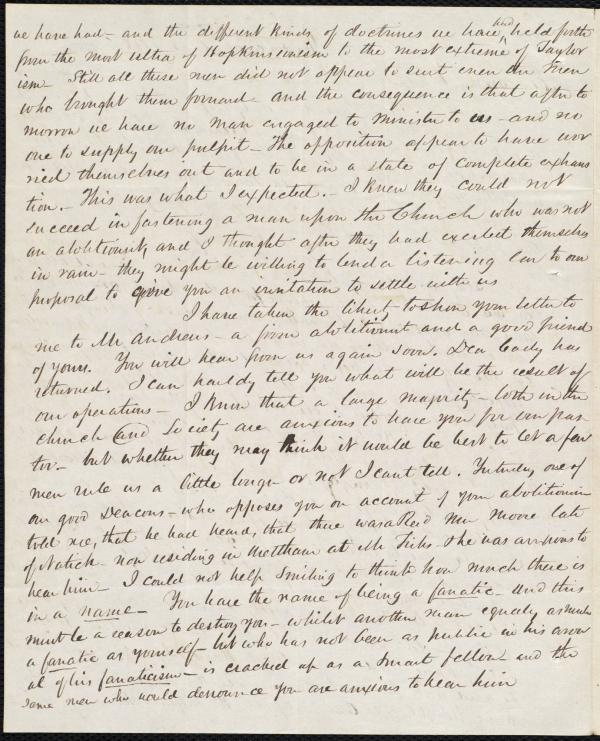 we have had – and the different kinds of doctrines we have had held forth
from the most ultra of Hopkinsianism to the most extreme of Taylor
ism – Still all these men did not appear to suit even the men
who brought them forward – and the consequence is that after to
morrow we have no man engaged to minister to us – and no
one to supply our pulpit – The opposition appear to have wor
ried themselves out and to be in a state of complete exhaus
tion. – This was what I expected. – I knew they could not
succeed in fastening a man upon the Church who was not
an abolitionist, and I thought after they had exerted themselves
in vain – they might be willing to lend a listening ear to our
proposal to give you an invitation to settle with us
I have taken the liberty to show your letter to
me to Mr Andrews – a firm abolitionist and a good friend
of yours. You will hear from us again soon. Dea has
returned. I can hardly tell you what will be the result of
our operations – I know that a large majority – both in the
church and Society are anxious to have you for our pas
tor – but whether they may think it would be best to let a few
men rule us a little longer or not I cant tell. Yesterday one of
our good Deacons – who opposes you on account of your abolitionism
told me, that he had heard, that there was a Revd Mr Moore late
of Natick – now residing in at Mr – he was anxious to
hear him – I could not help smiling to think how much there is
in a name – You have the name of being a fanatic – and this
must be a reason to destroy you – whilst another man equally as much
a fanatic as yourself – but who has not been as public in his avow
al of his fanaticism – is cracked up as a smart fellow and the
same men who would denounce you are anxious to hear him